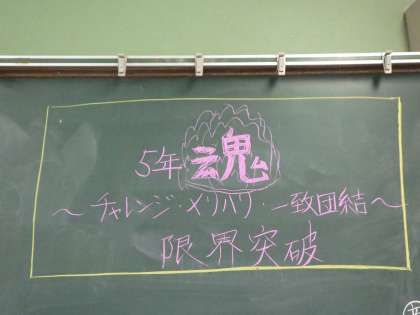 5年魂
～チャレンジ・メリハリ・一致団結～
限界突破